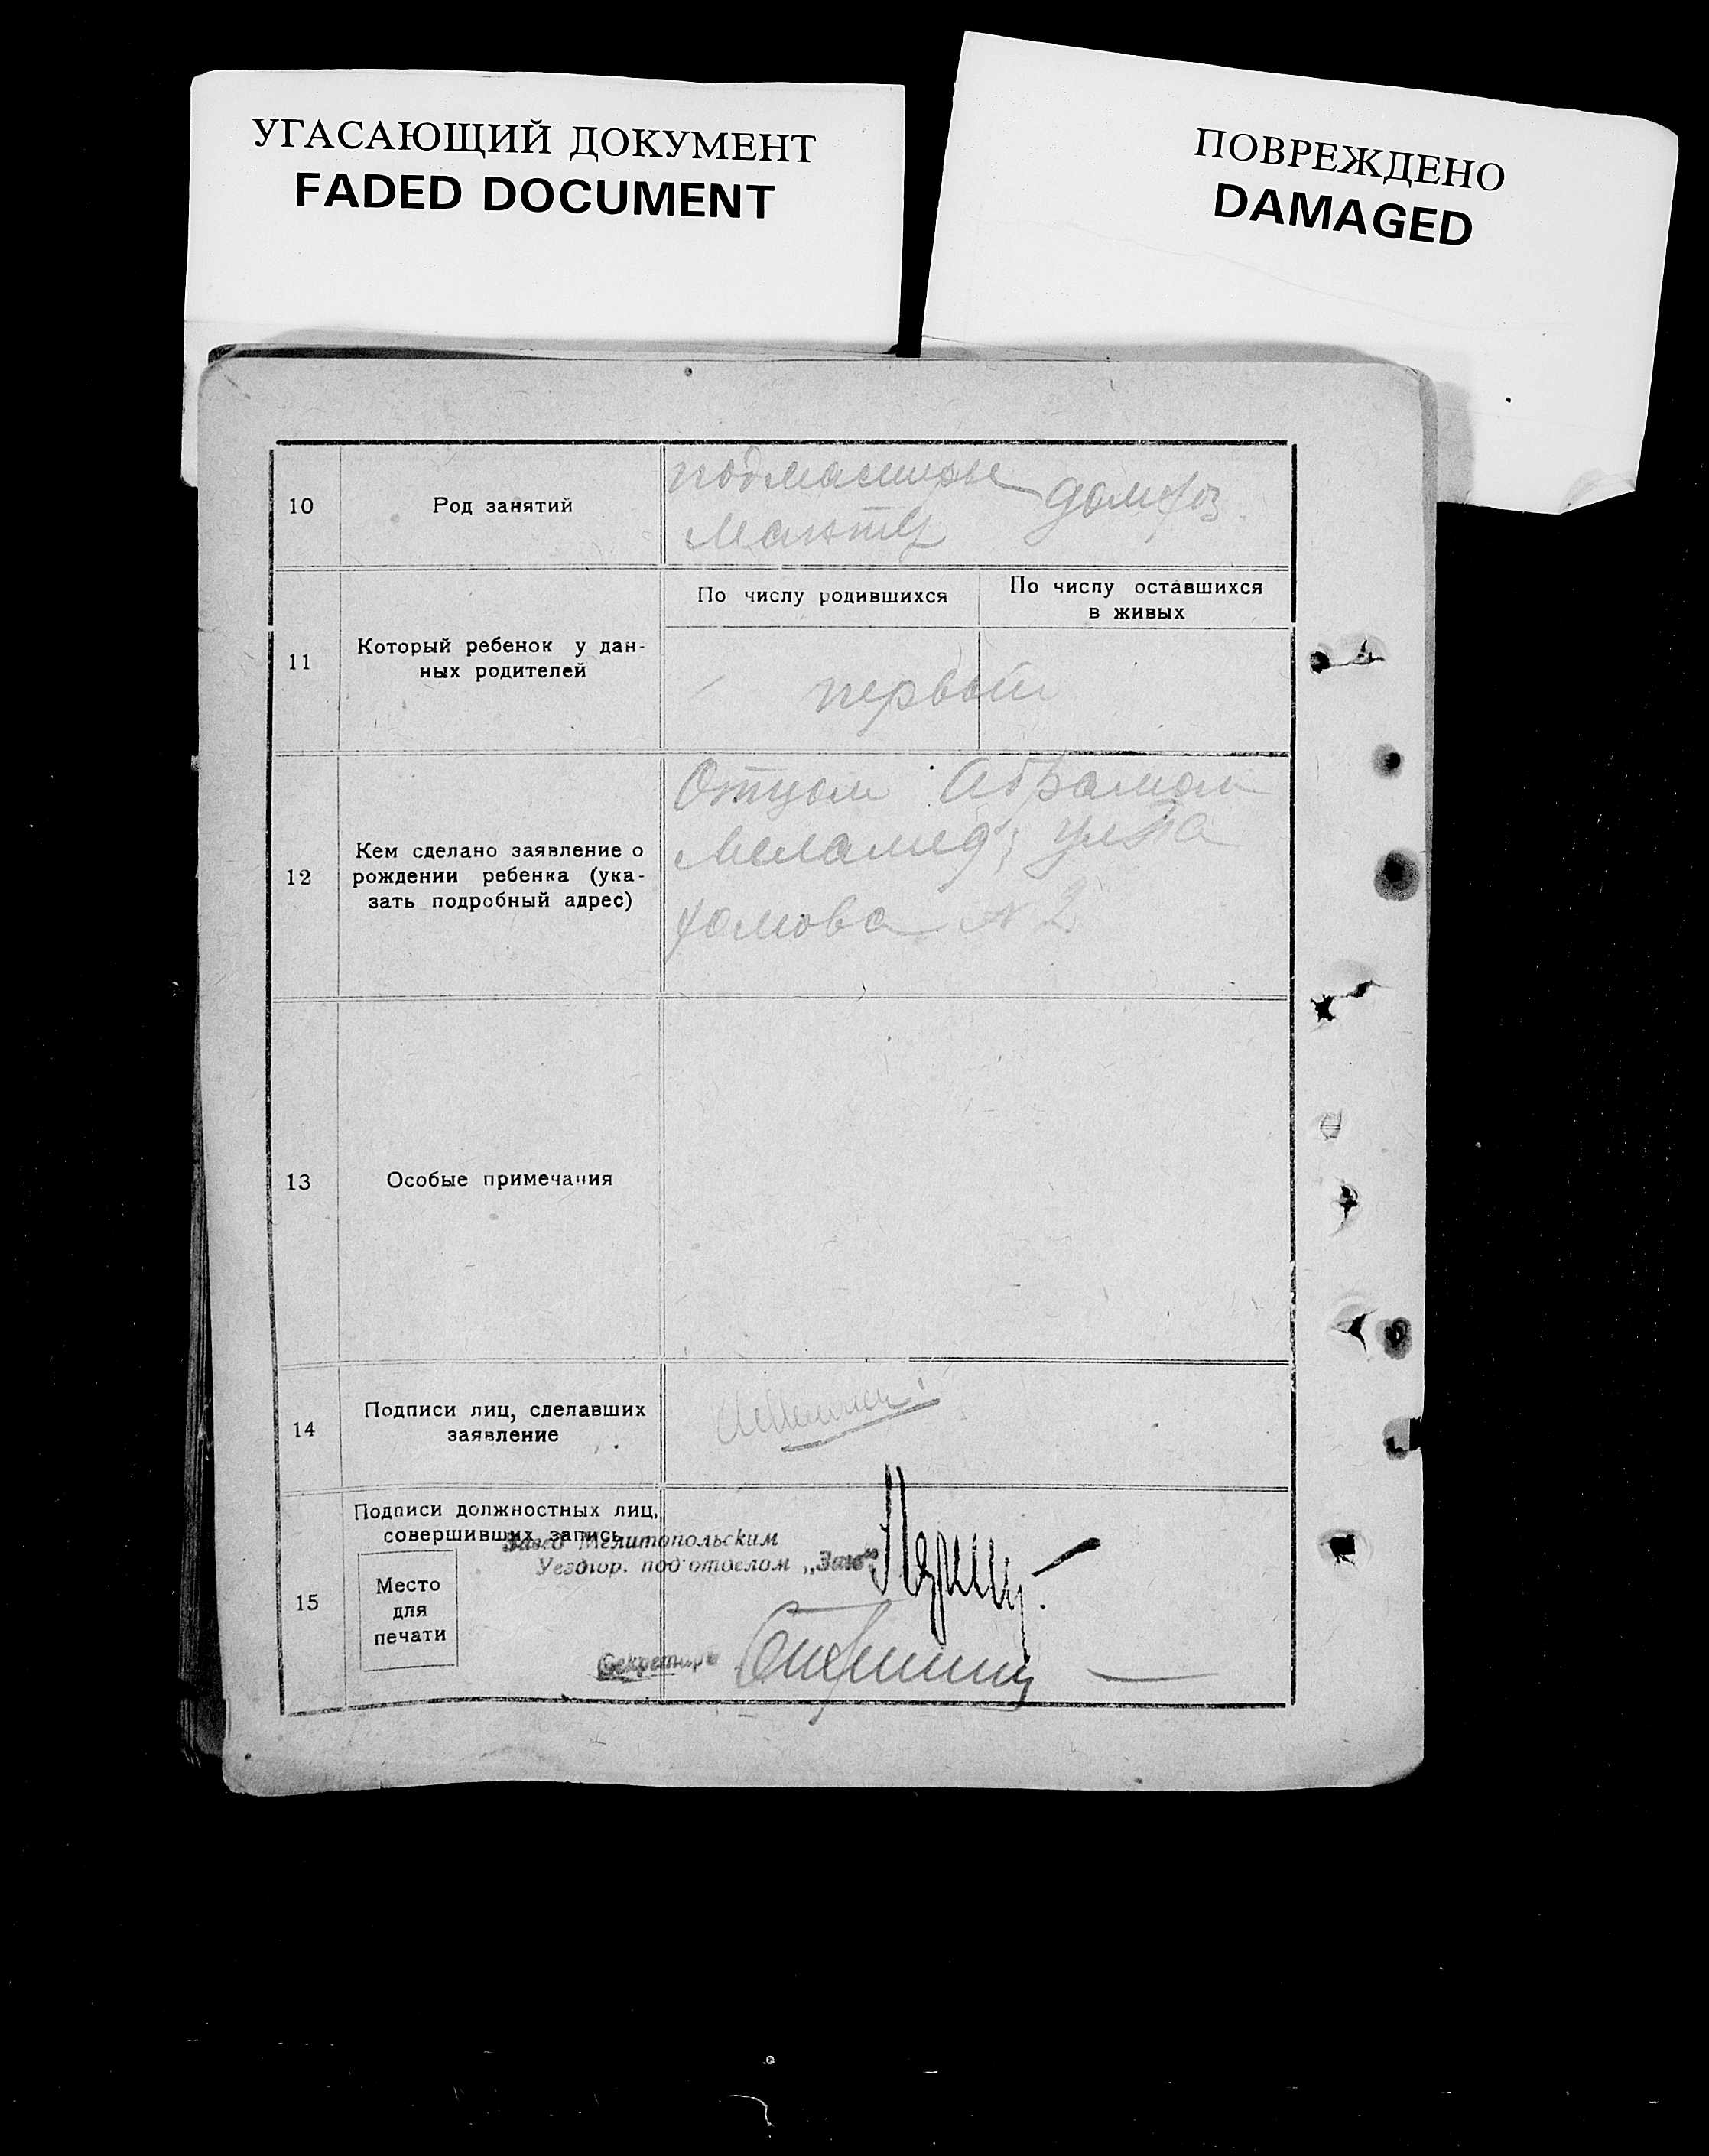 УГАСАЮЩИЙ ДОКУМЕНТ
FADED DOCUMENT
ПОВРЕЖДЕНО
DAMAGED
10
Род занятий
домхоз
11
Который ребенок у дан-
ных родителей
По числу родившихся
По числу оставшихся
в живых
первый
12
Кем сделано заявление о
рождении ребенка (ука-
зать подробный адрес)
Отцом Абрамом
Меламед;
№ 2
13
Особые примечания
14
Подписи лиц, сделавших
заявление
15
Подписи должностных лиц,
совершивших запись
Завед Мелитопольским
Уездгор. под'отделом „Загс"
Место
для
печати
Секретарь